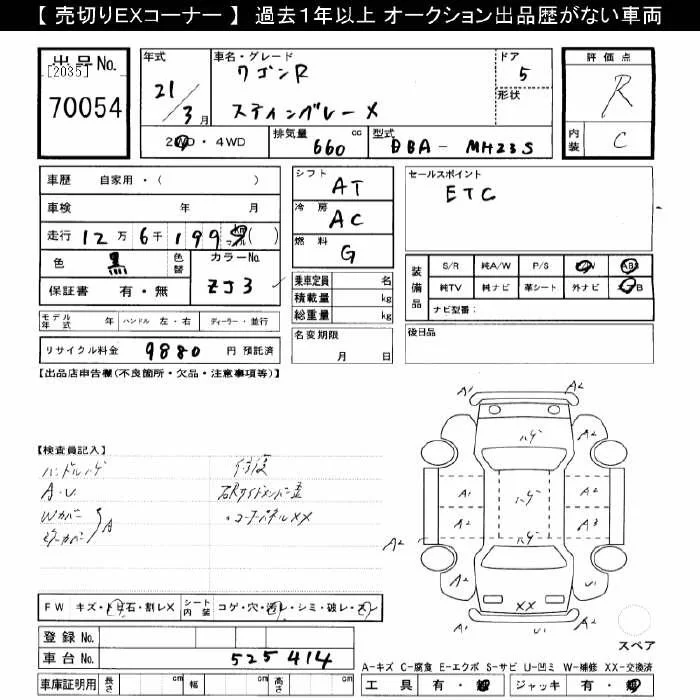 【 売切りEXコーナー 】 過去1年以上 オークション出品歴がない車両
出品No.
[2035]
70054
年式
21/3月
車名・グレード
ワゴンR
スティングレー X
ドア
5
形状
評価点
R
内装
C
2WD・4WD
排気量 660 cc
型式 DBA - MH23S
車歴 自家用・( )
車検 年 月
走行 12万6千199 km マイル ( )
色 黒
色替
カラーNo. ZJ3
保証書 有・無
シフト AT
冷房 AC
燃料 G
乗車定員 名
積載量 kg
総重量 kg
セールスポイント
ETC
装備品
S/R 純A/W P/S P/W ABS
純TV 純ナビ 革シート 外ナビ エアB
ナビ型番:
モデル年式 年 ハンドル 左・右 ディーラー・並行
リサイクル料金 9880 円 預託済
名変期限
月 日
後日品
【出品店申告欄(不良箇所・欠品・注意事項等)】
【検査員記入】
ハンドルハゲ
A・U
Wカバー
A
修復
コーナーパネルXX
A1 A2
A1 ハゲ A2
A1 ハゲ A2
A2 A3
A2 ハゲ A2
A1 U1
A1 XX A2
スペア
FW キズ・トビ石・割レX
シート内装 コゲ・穴・汚レ・シミ・破レ・スレ
登録No.
車台No. 525414
車庫証明用 長さ cm 幅 cm 高さ cm
A-キズ C-腐食 E-エクボ S-サビ U-凹ミ W-補修 XX-交換済
工具 有・無 ジャッキ 有・無